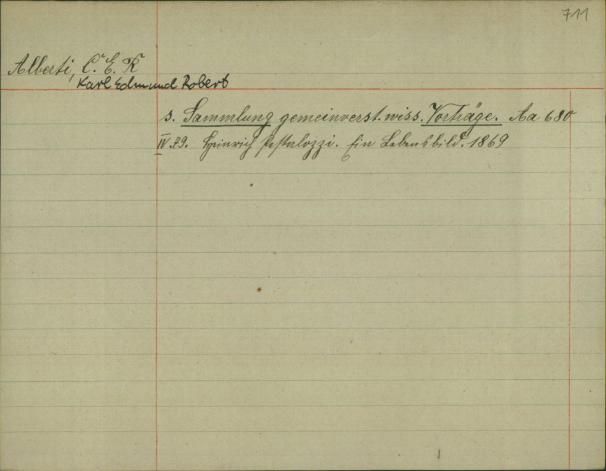 711
Alberti, C. E. R
Karl Edmund Robert
s. Sammlung gemeinverst. wiss. Vorträge. Aa 680
IV. 79. Heinrich Pestalozzi. Ein Lebensbild. 1869